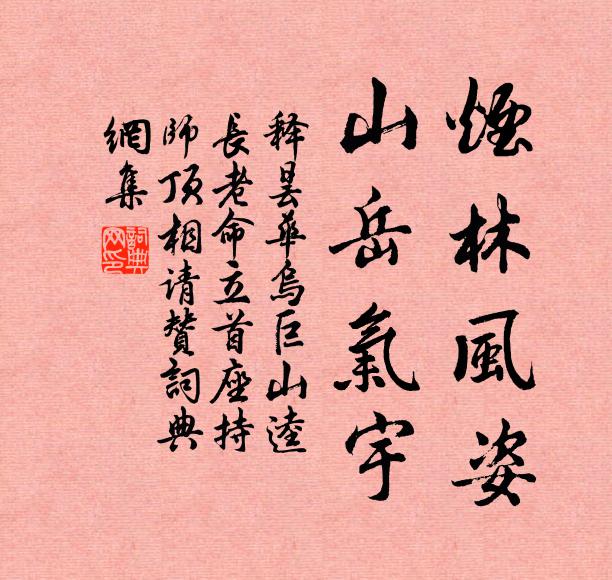 煙林風姿
山岳氣宇
释曇華烏巨山逵
長老命立首座持
師頂相请贊詞典
網集
詞典網印